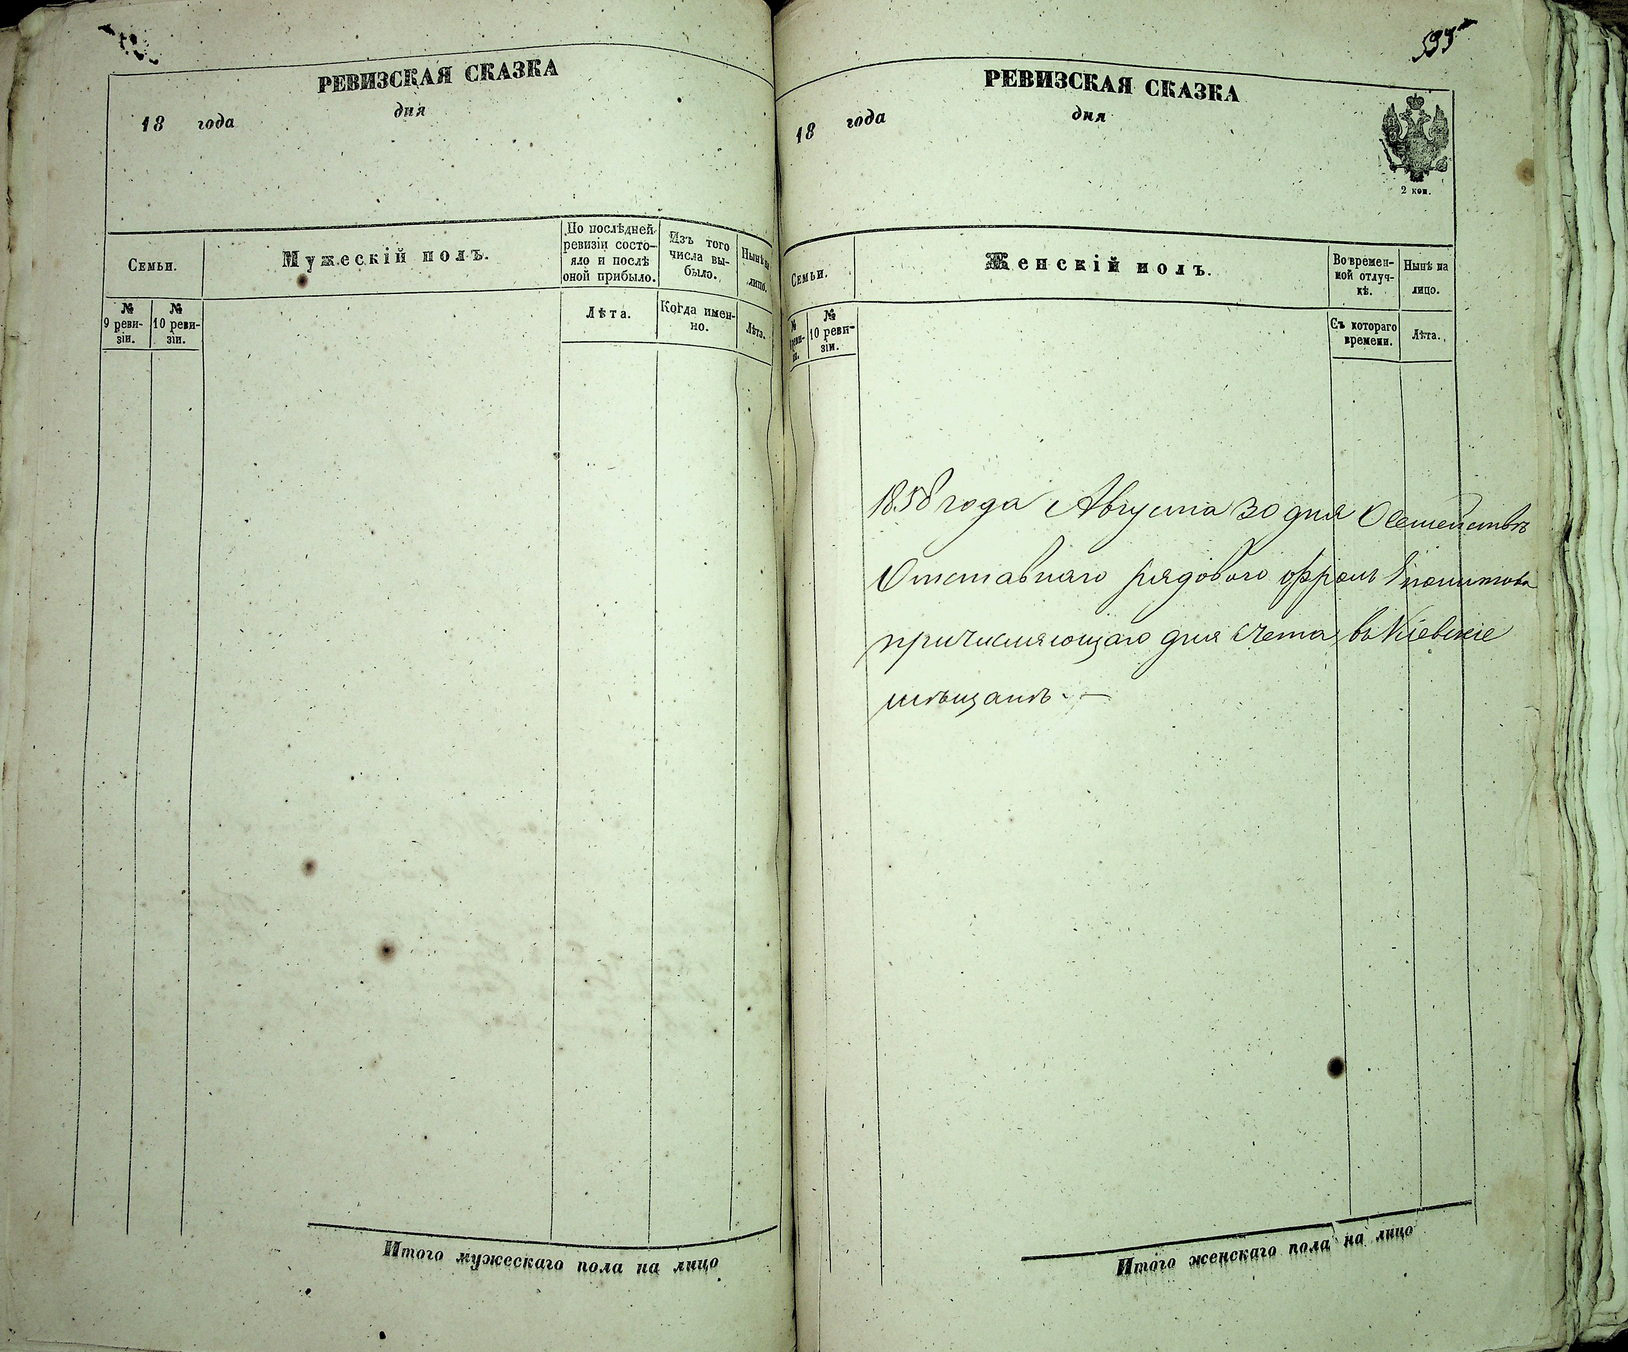 РЕВИЗСКАЯ СКАЗКА
18 года дня
Семьи.
Мужескій полъ.
По послѣдней
ревизіи состо-
яло и послѣ
оной прибыло.
Изъ того
числа вы-
было.
Нынѣ на
лицо.
№
9 реви-
зіи.
№
10 реви-
зіи.
Лѣта.
Когда имен-
но.
Лѣта.
Итого мужескаго пола на лицо
РЕВИЗСКАЯ СКАЗКА
18 года дня
2 коп.
Семьи.
Женскій полъ.
Во времен-
ной отлуч-
кѣ.
Нынѣ на
лицо.
№
10 реви-
зіи.
Съ котораго
времени.
Лѣта.
1858 года Августа 30 дня О семействѣ
Отставнаго рядового
причисляющаго для счета въ Кіевскіе
мѣщанѣ. —
Итого женскаго пола на лицо